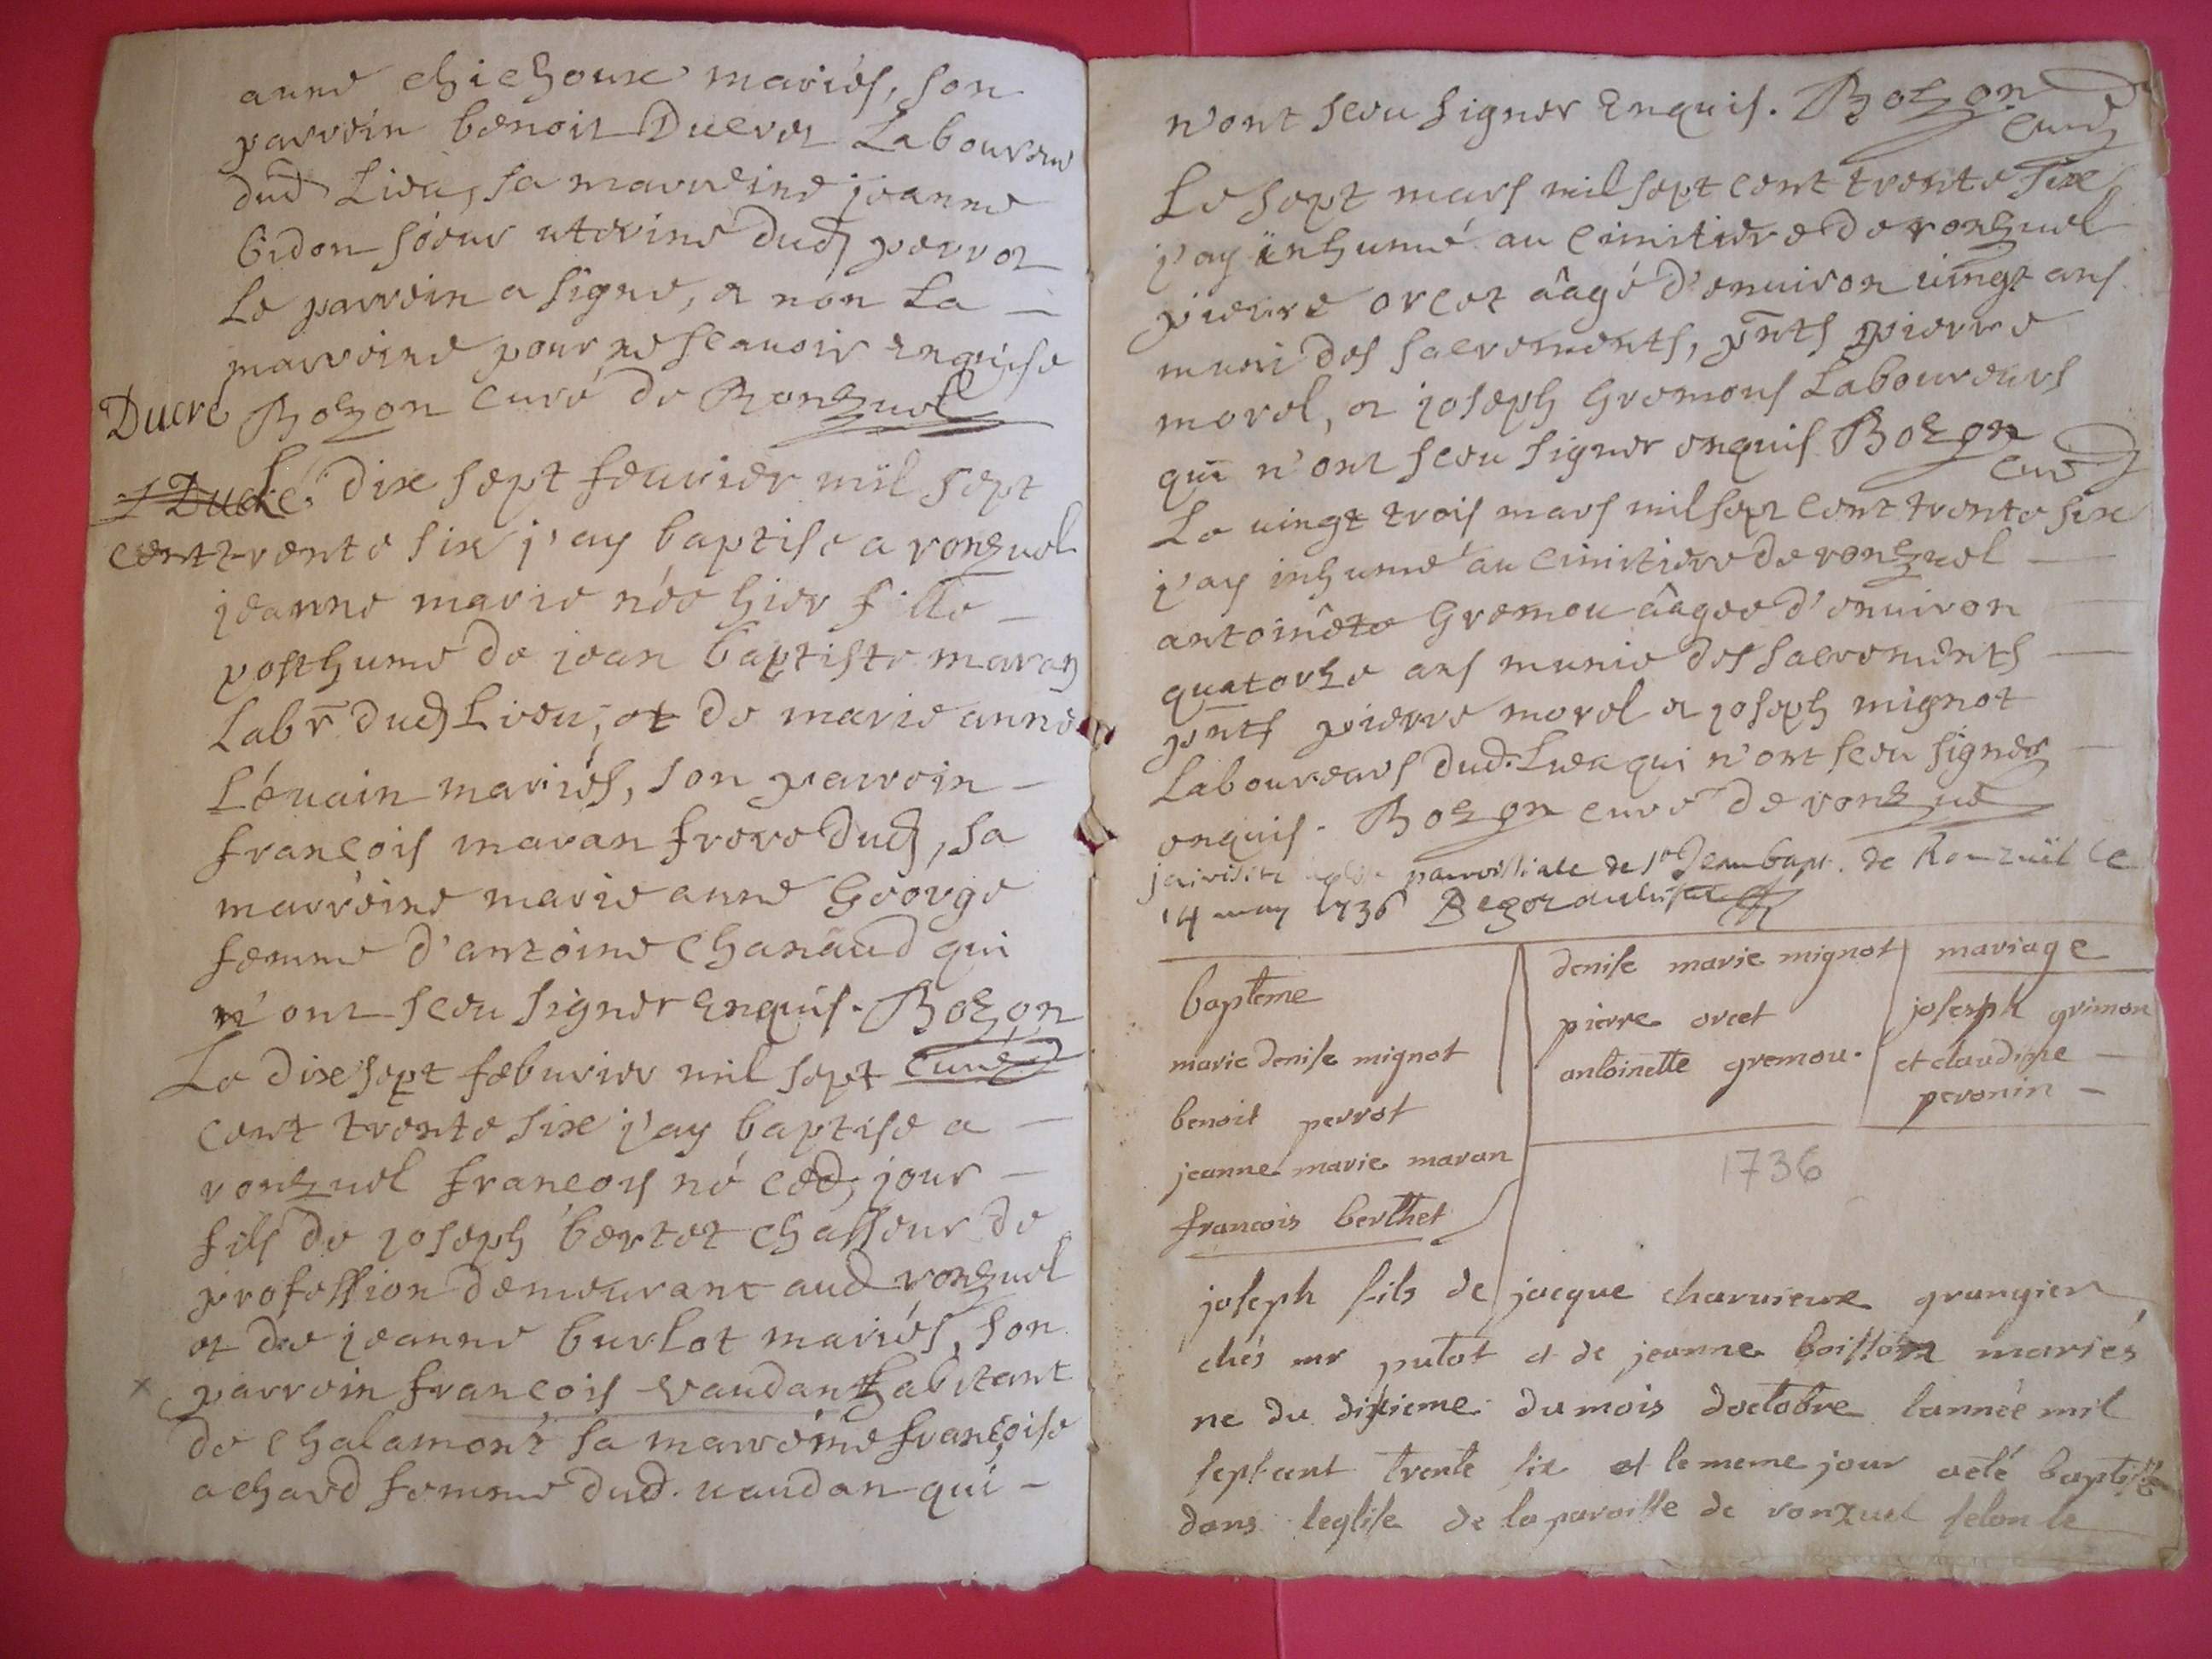 anne chichoux mariés, son
parrein benoit Ducret Laboureur
dud Lieu, sa marreine jeanne
bidon sóeur uterine dud perrot
Le parrein a signe, et non La
marreine pour ne scavoir enquise
Ducré Bozon curé de Ronzuel
Ducré
Le dix sept feuvrier mil sept
cent trente six j'ay baptise a ronzuel
jeanne marie née hier fille
posthume de jean baptiste maran
Labr dud Lieu, et de marie anne
Lévain mariés, son parrein
françois maran frere dud, sa
marreine marie anne George
femme d'antoine Chanaud qui
n'ont sceu signer enquis. Bozon
curé
Le dix sept febvrier mil sept
cent trente six j'ay baptise a
ronzuel françois né ced jour
fils de joseph bertet chasseur de
profession demeurant aud ronzuel
et de jeanne burlot mariés, son
x parrein françois vaudan habitant
de chalamont sa marreine françoise
achard femme dud. vaudan qui
n'ont sceu signer enquis. Bozon
curé
Le sept mars mil sept cent trente six
j'ay inhumé au cimitiere de ronzuel
pierre orcet âagé d'environ vingt ans
muni des sacrements, pnts pierre
morel, et joseph Gremons Laboureurs
qui n'ont sceu signer enquis Bozon
curé
Le vingt trois mars mil sept cent trente six
j'ay inhumé au cimitiere de ronzuel
antoinete Gremou âagee d'environ
quatorze ans munie des sacrements
pnts pierre morel et joseph mignot
Laboureurs dud. Lieu qui n'ont sceu signer
enquis. Bozon curé de ronzuel
jai visité parroissiale de st Jean bapt. de Ronzuil le
14 may 1736
bapteme
marie denise mignot
benoit perrot
jeanne marie maran
francois berthet
denise marie mignot
pierre orcet
antoinette gremou.
mariage
joseph grimon
et claudine
peronin
1736
joseph fils de jacque charvieux grangier
chés mr putot et de jeanne boisson mariés
ne du dixieme du mois doctobre lannée mil
sept cent trente six et le meme jour a eté baptisé
dans leglise de la paroisse de ronzuel selon le